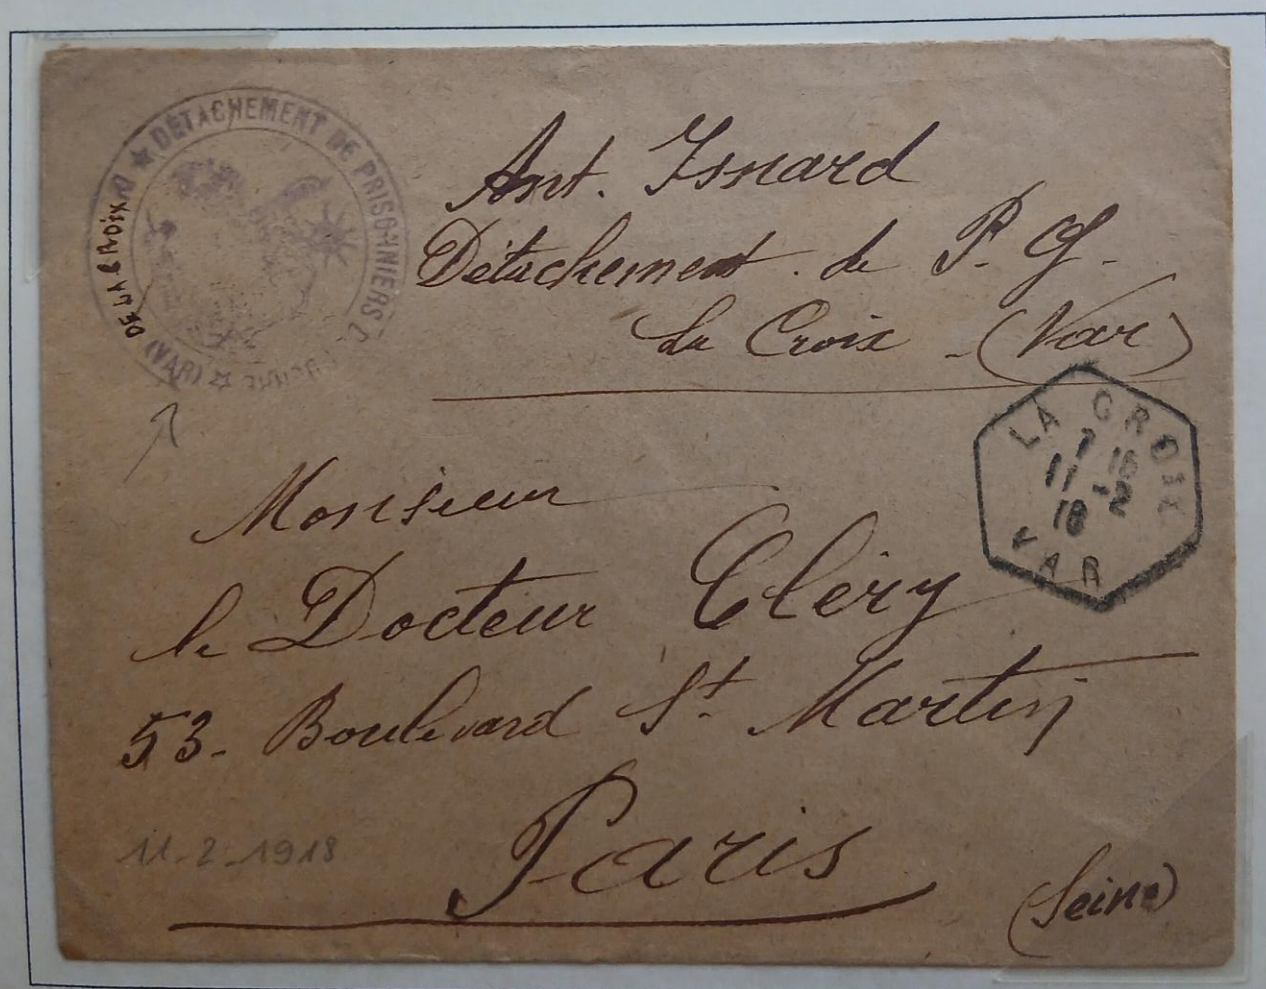 ★ DÉTACHEMENT DE PRISONNIERS
DE LA CROIX
(VAR) ☆
Ant. Isnard
Détachement de P. G.
La Croix (Var)
LA CROIX
7 15
11-2
18
VAR
Monsieur
le Docteur Cléry
53 - Boulevard St. Martin
Paris
(Seine)
11-2-1918